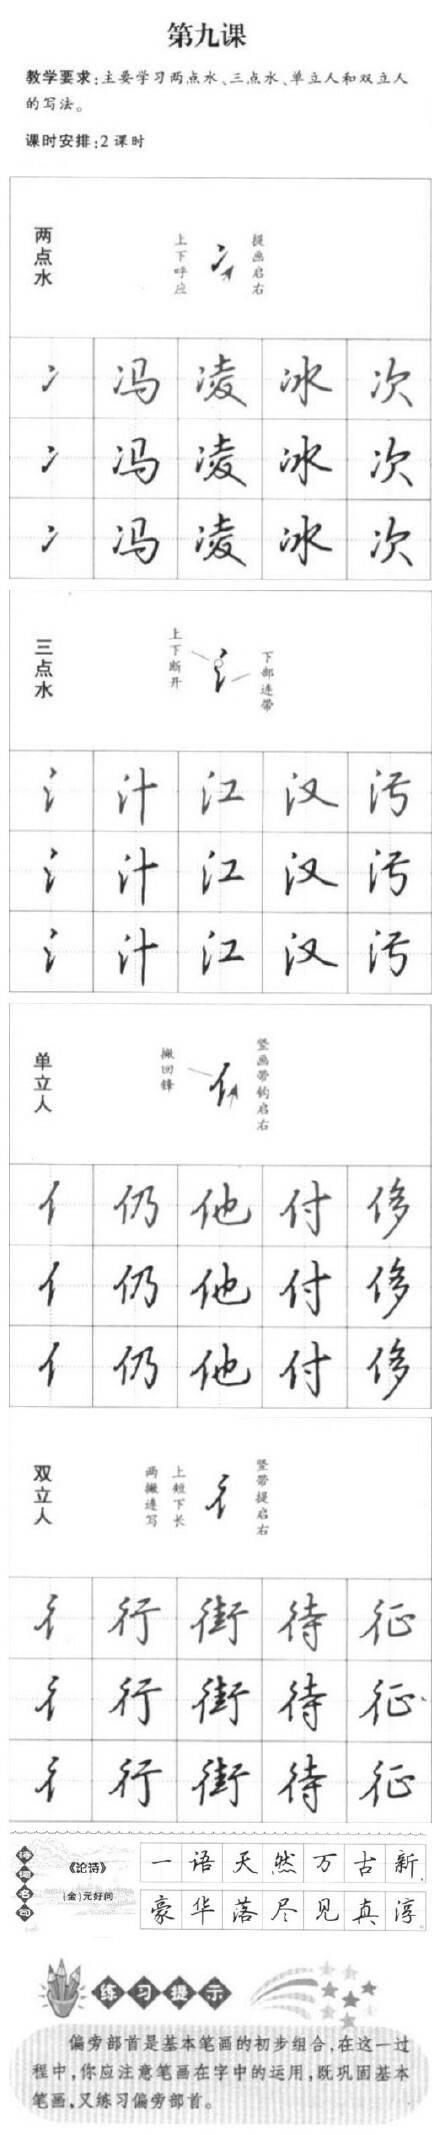 第九课
教学要求:主要学习两点水、三点水、单立人和双立人
的写法。
课时安排:2课时
两点水
上下呼应
提画启右
冫 冯 凌 冰 次
冫 冯 凌 冰 次
冫 冯 凌 冰 次
三点水
上下断开
下部连带
氵 汁 江 汉 污
氵 汁 江 汉 污
氵 汁 江 汉 污
单立人
撇回锋
竖画带钩启右
亻 仍 他 付 侈
亻 仍 他 付 侈
亻 仍 他 付 侈
双立人
两撇连写
上短下长
竖带提启右
彳 行 街 待 征
彳 行 街 待 征
彳 行 街 待 征
诗词名句
《论诗》
(金)元好问
一语天然万古新,
豪华落尽见真淳。
练习提示
偏旁部首是基本笔画的初步组合,在这一过
程中,你应注意笔画在字中的运用,既巩固基本
笔画,又练习偏旁部首。